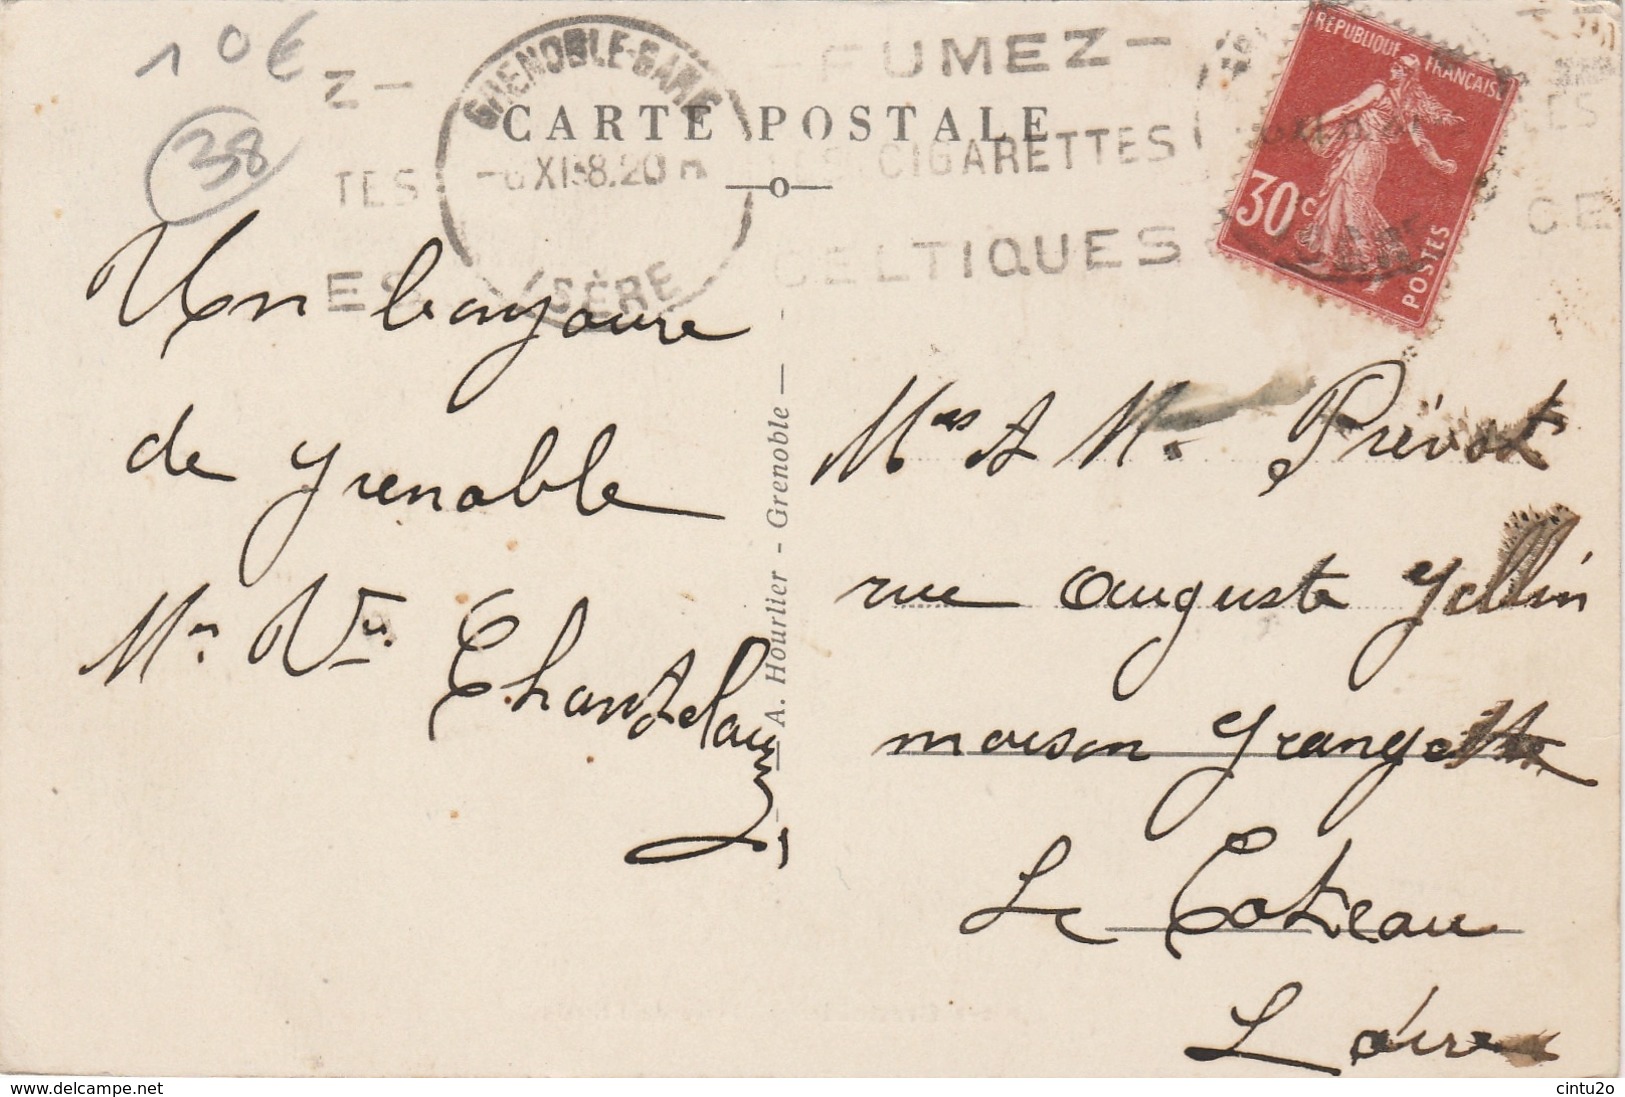 10€
38
Z - - FUMEZ -
GRENOBLE-GARE
ISÈRE
CARTE POSTALE
TES LES CIGARETTES LES
ES CELTIQUES CE
RÉPUBLIQUE FRANÇAISE
30c
POSTES
Un bonjour
de Grenoble
Mr Vve Chantelauze
A. Hourlier - Grenoble
Mrs A M. Prévot
rue Auguste Gellin
maison Grangette
Le Coteau
Loire
delcampe.net
cintu2o